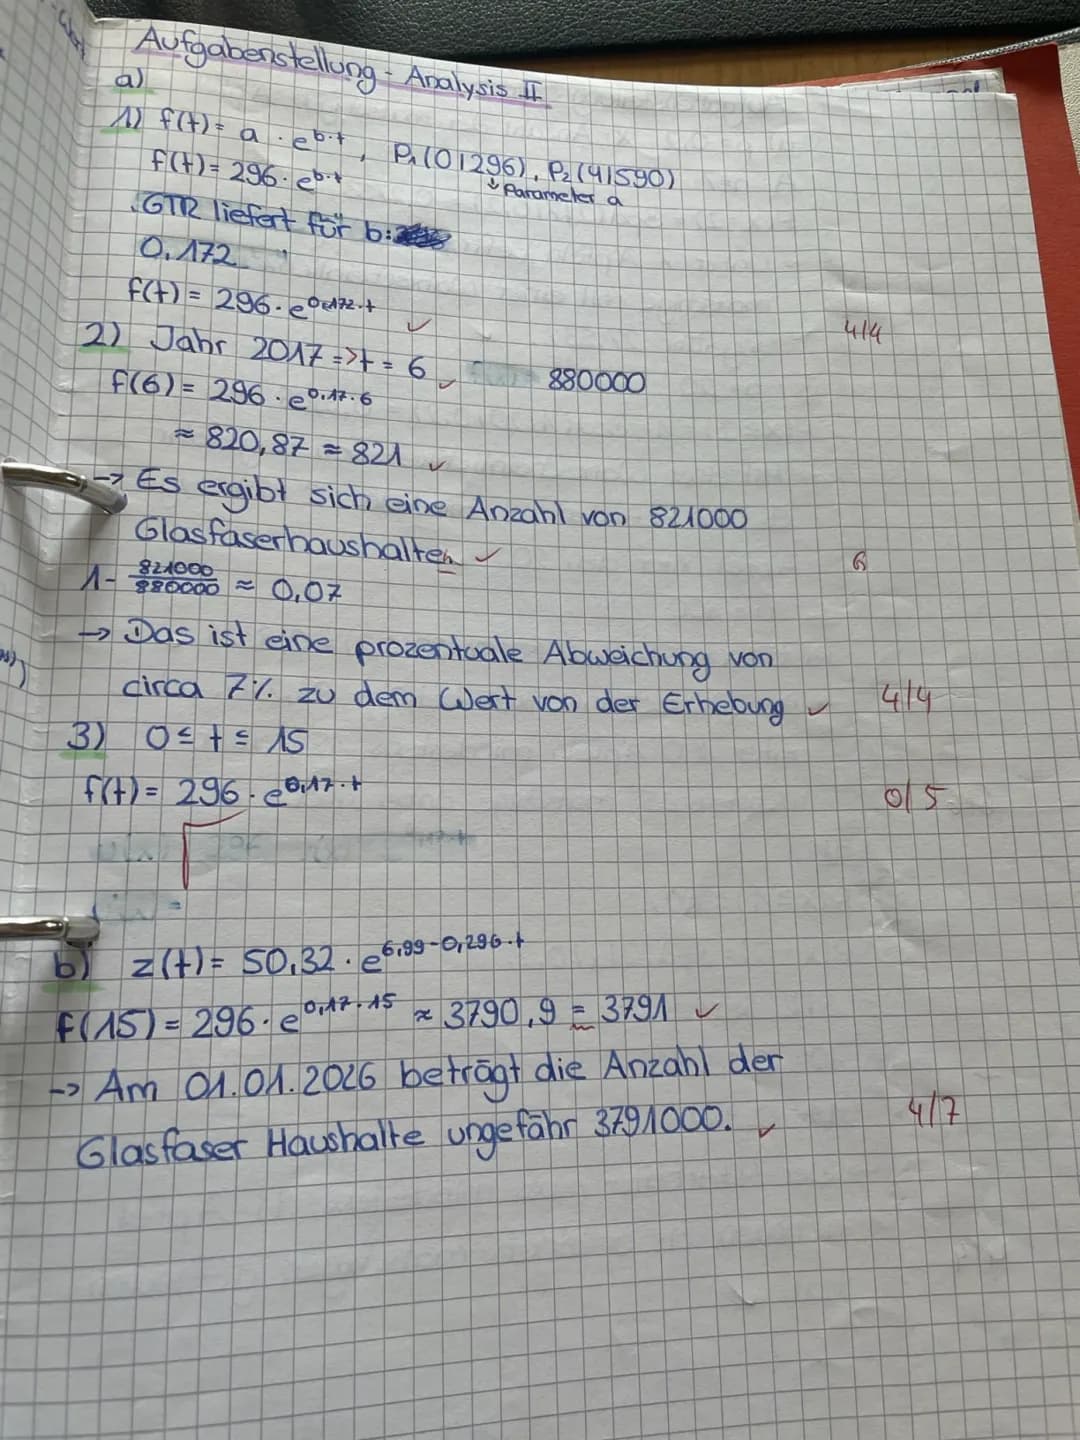 Aufgabenstellung - Analysis II
a)
1) f(t) = a · e^b·t, P₁(0|296), P₂(4|590)
↓ Parameter a
f(t) = 296 · e^b·t
GTR liefert für b:
0,172
f(t) = 296 · e^0,172·t ✓
4/4
2) Jahr 2017 => t = 6 ✓ 880000
f(6) = 296 · e^0,17·6
≈ 820,87 ≈ 821 ✓
→ Es ergibt sich eine Anzahl von 821000
Glasfaserhaushalten ✓
6
1 - 821000/880000 ≈ 0,07
→ Das ist eine prozentuale Abweichung von
circa 7% zu dem Wert von der Erhebung ✓ 4/4
3) 0 ≤ t ≤ 15
f(t) = 296 · e^0,17·t
0/5
b) z(t) = 50,32 · e^6,99-0,296·t
f(15) = 296 · e^0,17·15 ≈ 3790,9 = 3791 ✓
→ Am 01.01.2026 beträgt die Anzahl der
Glasfaser Haushalte ungefähr 3791000. ✓
4/7